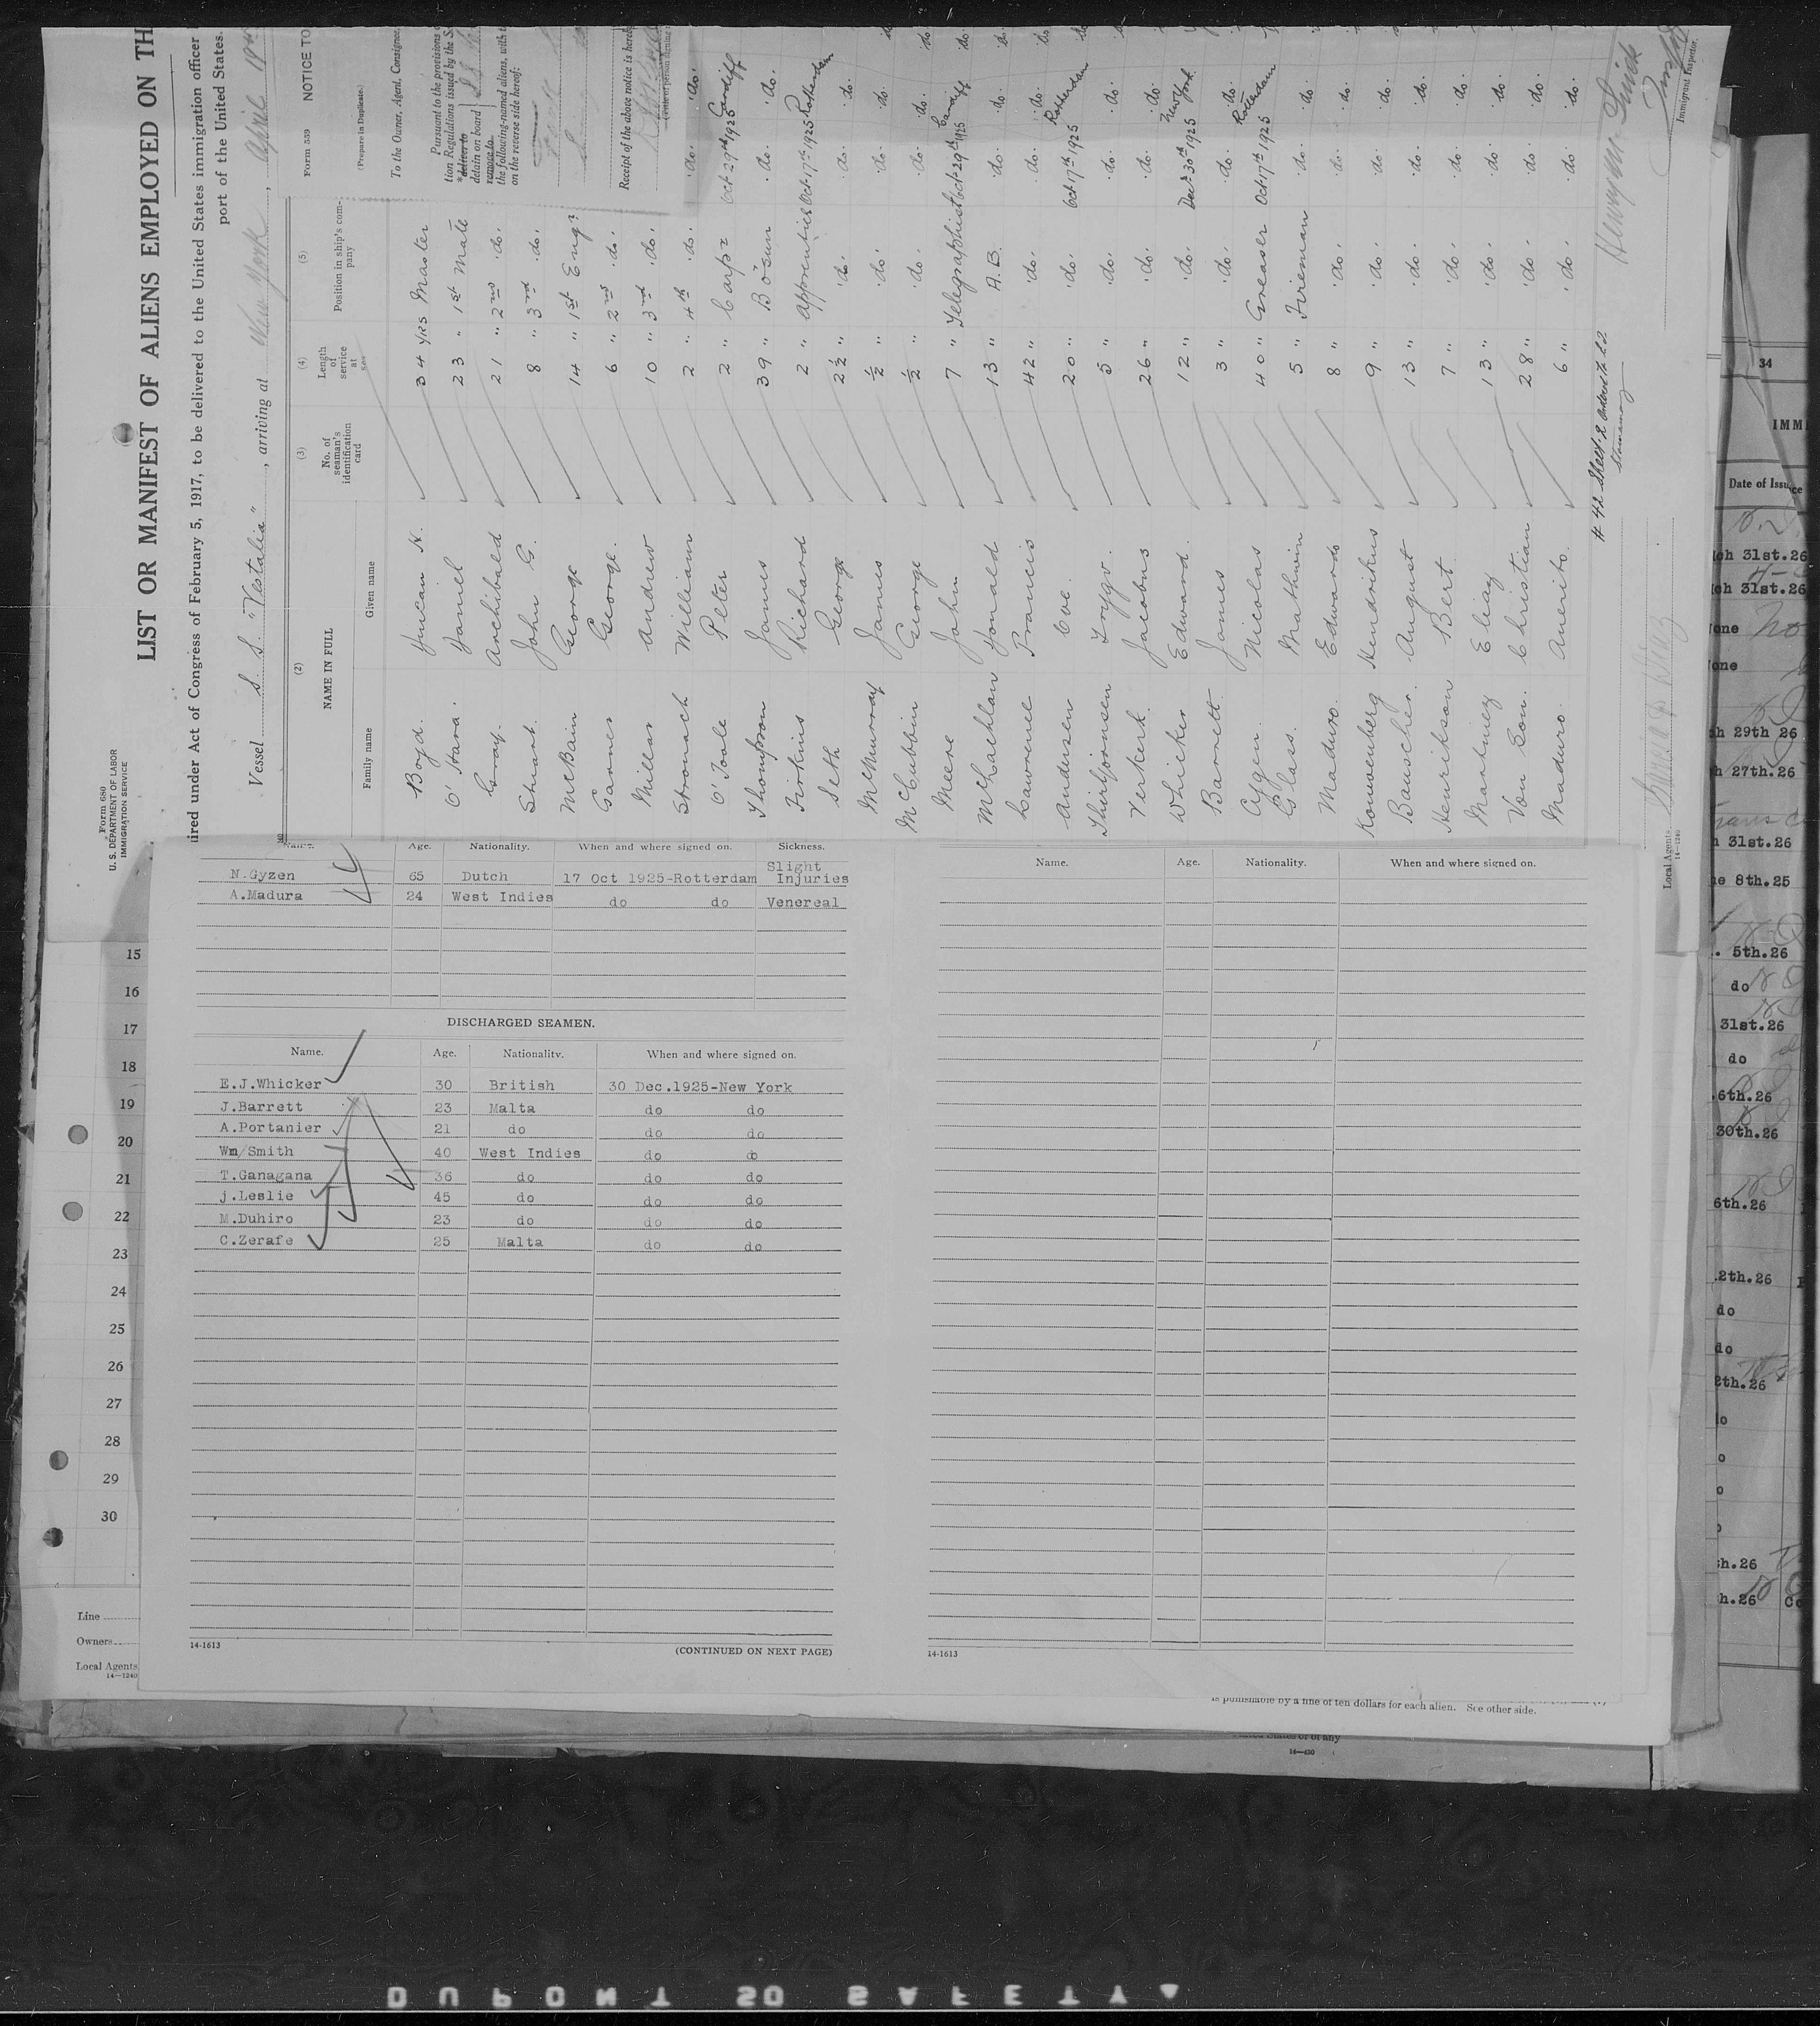 Form 680
U. S. DEPARTMENT OF LABOR
IMMIGRATION SERVICE
LIST OR MANIFEST OF ALIENS EMPLOYED ON TH
ired under Act of Congress of February 5, 1917, to be delivered to the United States immigration officer
port of the United States.
Vessel S. S. "Vestalia", arriving at New York, April
(2) (3) (4) (5)
NAME IN FULL No. of seaman's identification card Length of service at sea Position in ship's company
Family name Given name
Boyd. Duncan H. 34 yrs Master
O'Hara. Daniel 23 " 1st Mate
Gray. Archibald 21 " 2nd do.
Stuart. John G. 8 " 3rd do.
McBain George 14 " 1st Engr
Garner George. 6 " 2nd do.
Millar Andrew 10 " 3rd do.
Stronach William 2 " 4th do. do. do.
O'Toole Peter 2 " Carpr Oct 29th 1925 Cardiff
Thompson James 39 " Bosun do. do.
Firkins Richard 2 " Apprentice Oct 17th 1925 Rotterdam
Seth George 2½ " do. do. do.
McMurray James ½ " do. do. do.
McCubbin George ½ " do. do. do.
Meere John 7 " Telegraphist Oct 29th 1925 Cardiff
McLachlan Donald 13 " A.B. do. do.
Lawrence Francis 42 " do. do. do.
Andersen Ove 20 " do. Oct 17th 1925 Rotterdam
Thirbjornsen Trygv. 5 " do. do. do.
Verkerk. Jacobus 26 " do. do. do.
Whicker Edward. 12 " do. Dec 30th 1925 New York
Barrett. James 3 " do. do. do.
Gyzen. Nicolas 40 " Greaser Oct 17th 1925 Rotterdam
Glass. Mathurin 5 " Fireman do. do.
Maduro. Edwardo 8 " do. do. do.
Kouwenberg Hendrikus 9 " do. do. do.
Bauscher. August 13 " do. do. do.
Henrikson Bert. 7 " do. do. do.
Martinez Eliay 13 " do. do. do.
Von Eon. Christian 28 " do. do. do.
Maduro. Auerito. 6 " do. do. do.
Immigrant Inspector.
Local Agents
14—1240
Form 559 NOTICE TO
(Prepare in Duplicate.)
To the Owner, Agent, Consignee,
Pursuant to the provisions
tion Regulations issued by the Se
* deliver to
detain on board
remove to
the following-named aliens, with
on the reverse side hereof:
Receipt of the above notice is hereby
Name. Age. Nationality. When and where signed on. Sickness.
N.Gyzen 65 Dutch 17 Oct 1925-Rotterdam Slight Injuries
A.Madura 24 West Indies do do Venereal
DISCHARGED SEAMEN.
Name. Age. Nationality. When and where signed on.
E.J.Whicker 30 British 30 Dec.1925-New York
J.Barrett 23 Malta do do
A.Portanier 21 do do do
Wm/Smith 40 West Indies do do
T.Ganagana 36 do do do
j.Leslie 45 do do do
M.Duhiro 23 do do do
C.Zerafe 25 Malta do do
14-1613
(CONTINUED ON NEXT PAGE)
Name. Age. Nationality. When and where signed on.
14-1613
15
16
17
18
19
20
21
22
23
24
25
26
27
28
29
30
Line
Owners
Local Agents
14—1240
is punishable by a fine of ten dollars for each alien. See other side.
14—430
34
IMMI
Date of Issuce
ch 31st.26
ch 31st.26
one No
one
h 29th 26
h 27th.26
h 31st.26
ne 8th.25
. 5th.26
do
31st.26
do
.6th.26
30th.26
6th.26
2th.26
do
do
2th.26
lo
o
o
h.26
h.26
DUPONT SO SAFETY